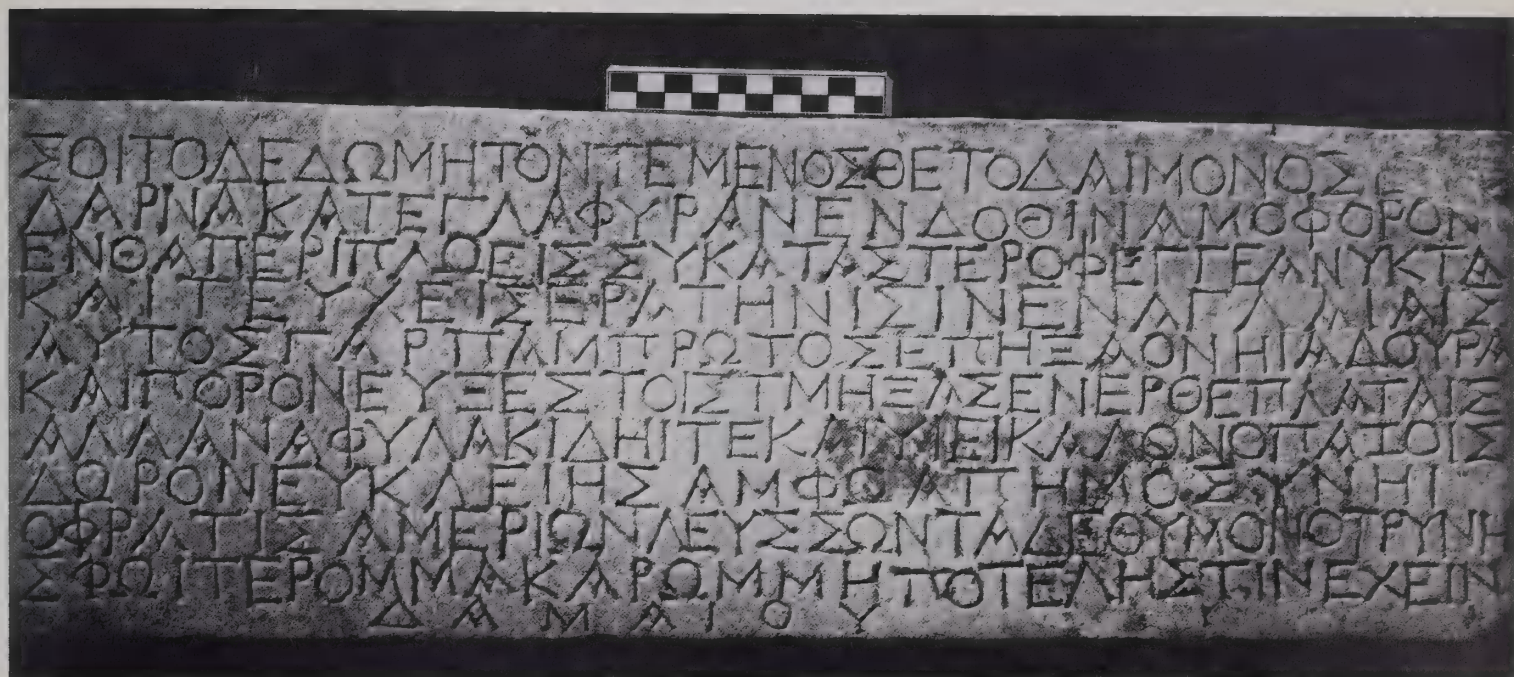 ΣΟΙΤΟΔΕΔΩΜΗΤΟΝΤΕΜΕΝΟΣΘΕΤΟΔΑΙΜΟΝΟΣ
ΔΑΡΝΑΚΑΤΕΓΛΑΦΥΡΑΝΕΝΔΟΘΙΝΑΜΟΦΟΡΟΝ
ΕΝΘΑΠΕΡΙΠΛΩΕΙΣΣΥΚΑΤΑΣΤΕΡΟΦΕΓΓΕΑΝΥΚΤΑ
ΚΑΙΤΕΥΧΕΙΣΕΡΑΤΗΝΙΣΙΝΕΝΑΓΛΑΙΑΙΣ
ΑΥΤΟΣΓΑΡΠΑΜΠΡΩΤΟΣΕΠΗΞΑΟΝΗΙΑΔΟΥΡΑ
ΚΑΙΠΟΡΟΝΕΥΞΕΣΤΟΙΣΤΜΗΞΑΣΕΝΕΡΘΕΠΛΑΤΑΙΣ
ΑΛΛΑΝΑΦΥΛΑΚΙΔΗΙΤΕΚΑΙΥΙΕΙΚΑΛΛΘΝΟΠΑΙΟΙΣ
ΔΩΡΟΝΕΥΚΛΕΙΗΣΑΜΦΩΑΠΗΜΟΣΥΝΗΙ
ΟΦΡΑΤΙΣΑΜΕΡΙΩΝΛΕΥΣΣΩΝΤΑΔΕΘΥΜΟΝΟΤΡΥΝΗ
ΣΦΩΙΤΕΡΟΜΜΑΚΑΡΩΜΜΗΠΟΤΕΛΗΣΤΙΝΕΧΕΙΝ
ΔΑΜΑΙΟΥ